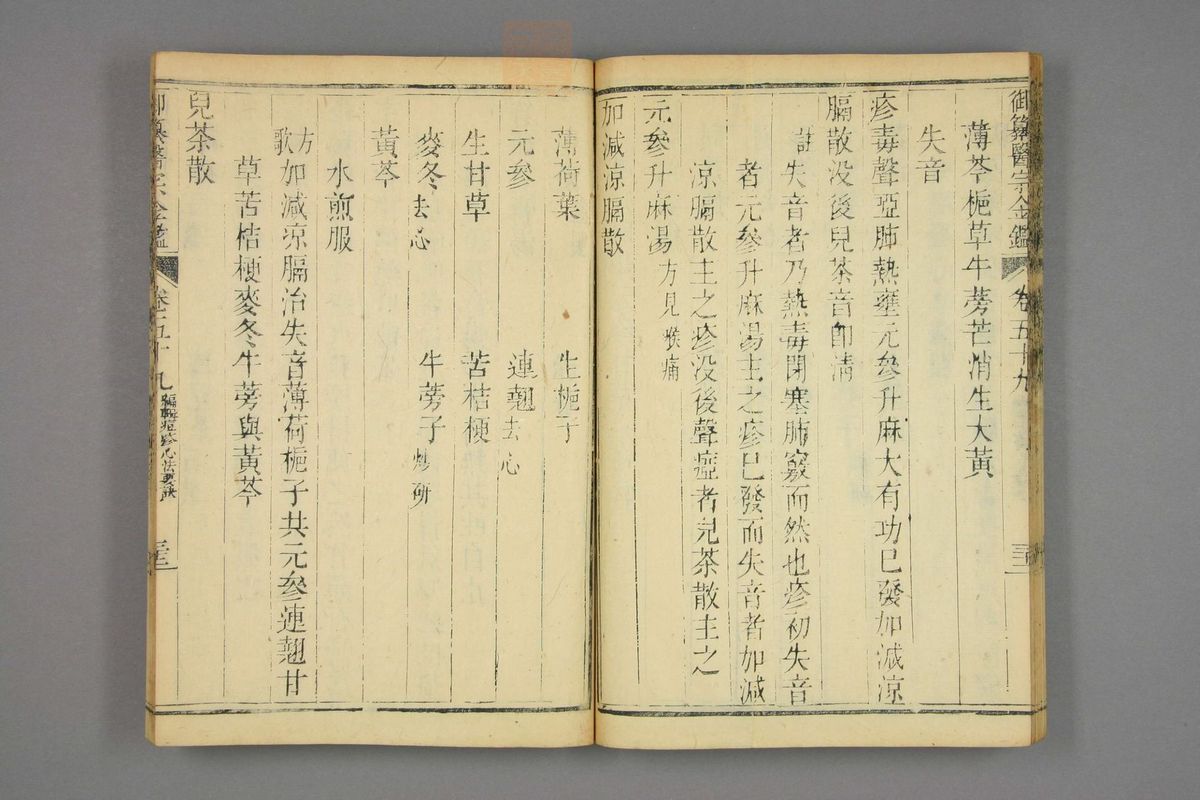 御纂醫宗金鑑 卷五十九
薄芩梔草牛蒡芒消生大黃
失音
疹毒聲瘂肺熱壅元參升麻大有功已發加減涼
膈散没後兒茶音卽清
註失音者乃熱毒閉塞肺竅而然也疹初失音
者元參升麻湯主之疹已發而失音者加減
涼膈散主之疹没後聲瘂者兒茶散主之
元參升麻湯 方見喉痛
加減涼膈散
薄荷葉 生梔子
元參 連翹去心
生甘草 苦桔梗
麥冬去心 牛蒡子炒研
黃芩
水煎服
方歌加減涼膈治失音薄荷梔子共元參連翹甘
草苦桔梗麥冬牛蒡與黃芩
兒茶散
御纂醫宗金鑑 卷五十九 編輯痘疹心法要訣